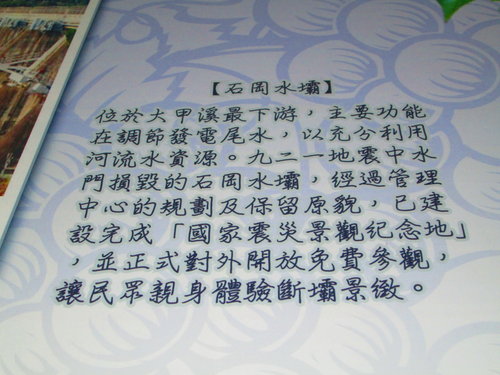 【石岡水壩】
位於大甲溪最下游，主要功能
在調節發電尾水，以充分利用
河流水資源。九二一地震中水
門損毀的石岡水壩，經過管理
中心的規劃及保留原貌，已建
設完成「國家震災景觀紀念地」
，並正式對外開放免費參觀，
讓民眾親身體驗斷壩景緻。